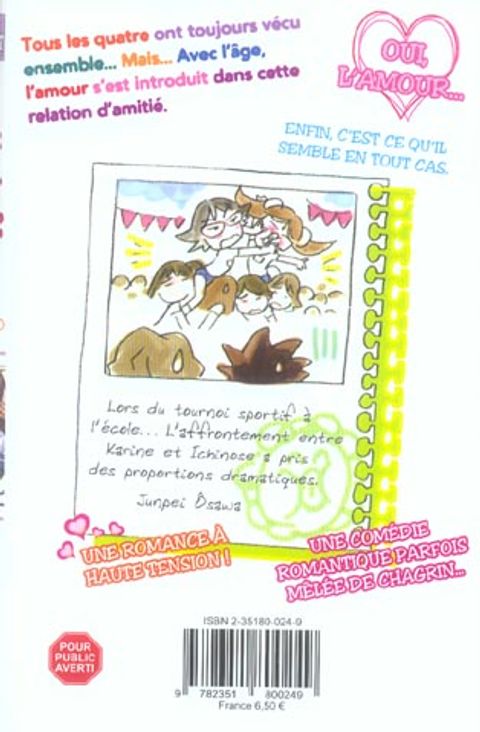 Tous les quatre ont toujours vécu
ensemble... Mais... Avec l'âge,
l'amour s'est introduit dans cette
relation d'amitié.
OUI,
L'AMOUR...
ENFIN, C'EST CE QU'IL
SEMBLE EN TOUT CAS.
Lors du tournoi sportif à
l'école... L'affrontement entre
Karine et Ichinose a pris
des proportions dramatiques.
Junpei Ôsawa
UNE ROMANCE À
HAUTE TENSION !
UNE COMÉDIE
ROMANTIQUE PARFOIS
MÊLÉE DE CHAGRIN...
POUR
PUBLIC
AVERTI
ISBN 2-35180-024-9
9 782351 800249
France 6,50 €